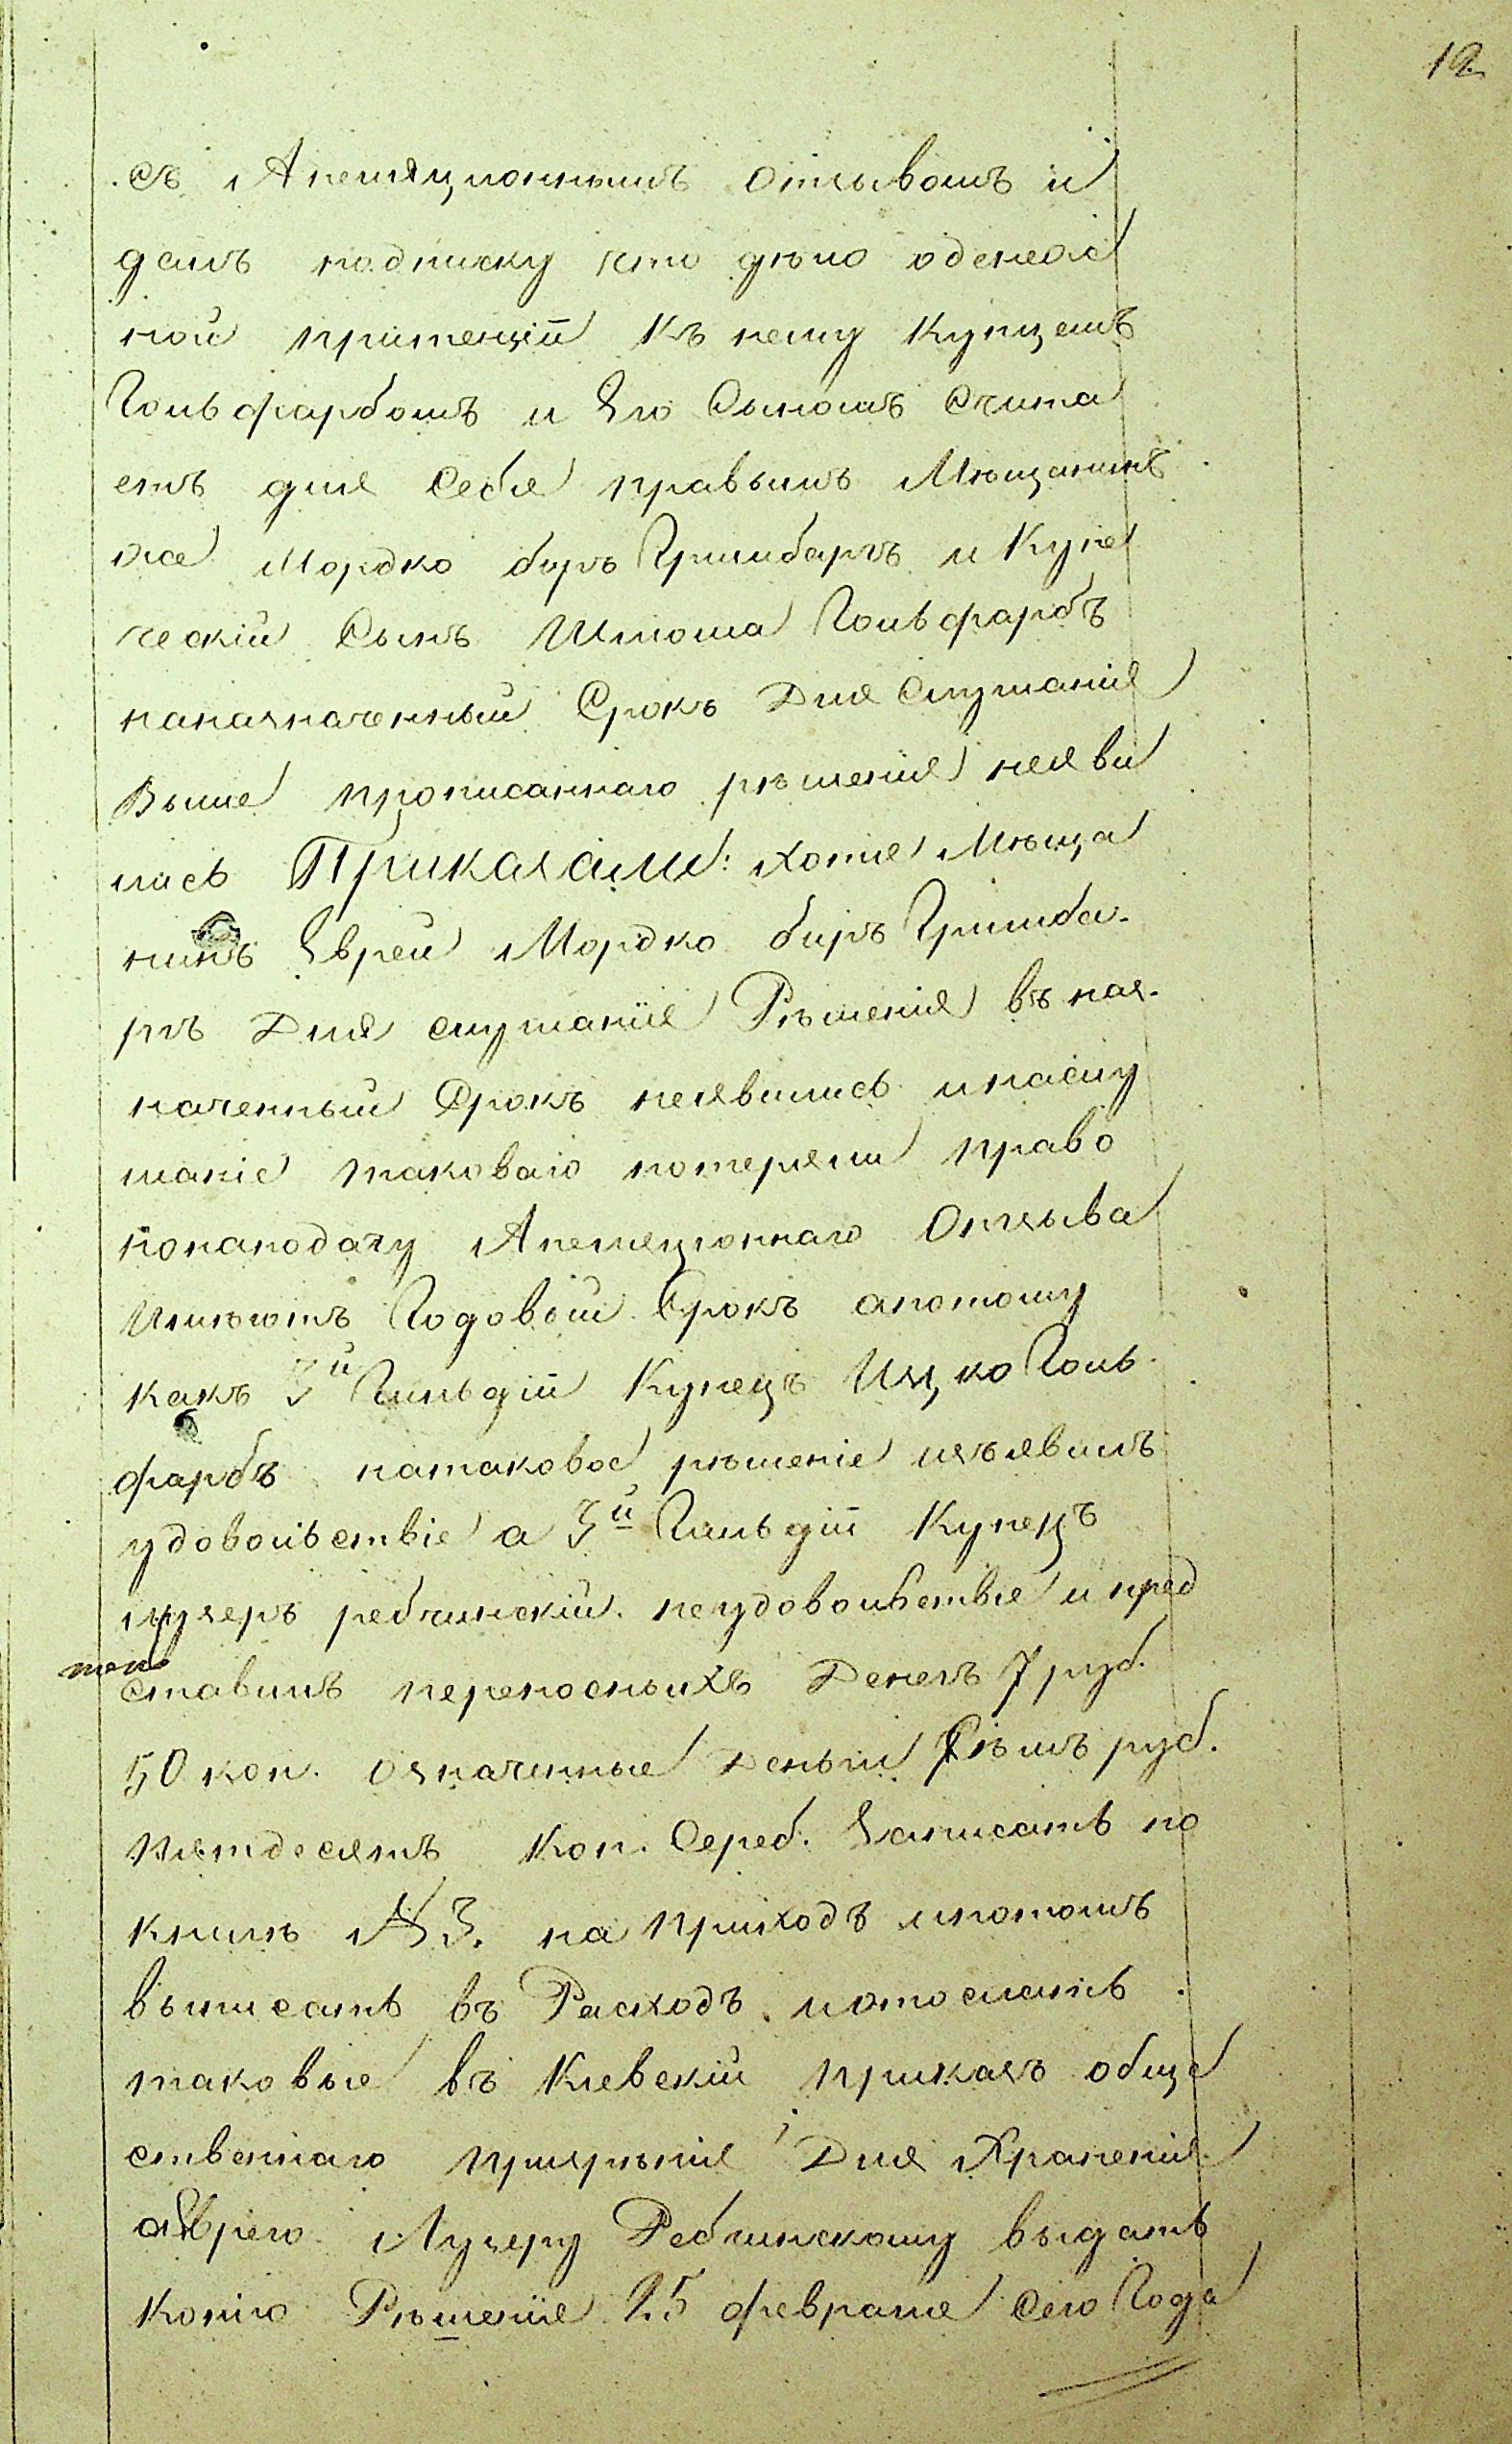 12
съ Апеляционнымъ отзывомъ и
далъ подписку что дѣло оденеж
ной притенціи къ нему купцемъ
Гольфарбомъ и Его Сыномъ Счита
етъ для Себя правымъ Мѣщанинъ
же Мордко беръ Гринбергъ и Купе
ческій Сынъ Шлюма Гольфарбъ
наназначенный Срокъ Для Слушанія
Выше прописаннаго рѣшенія неяви
лись Приказали: хотя Мѣща
нинъ Еврей Мордко беръ Гринбе-
ргъ Для слушанія Рѣшенія въ наз-
наченный Срокъ неявились инаслу
шаніе таковаго потеряли право
нонаподачу Апеляционнаго Отзыва
Имѣютъ Годовый Срокъ апотому
какъ 3й Гильдіи Купецъ Ицко Голь-
фарбъ натаковое рѣшеніе изъявилъ
удовольствіе а 3й Гильдіи Купецъ
Лузеръ Ребчинскій неудовольствіе и пред
ставилъ переносныхъ Денегъ 7 руб.
50 коп. означенные Деньги Сѣмъ руб.
Пятдесятъ Коп. Сереб. Записать по
книгѣ № 3. на приходъ ипотомъ
выписать въ Расходъ иотослать
таковые въ Кіевскій приказъ обще
ственнаго призрѣнія Для Храненія
аЕврею Лузеру Ребчинскому выдать
копію Рѣшенія 25 февраля Сего Года